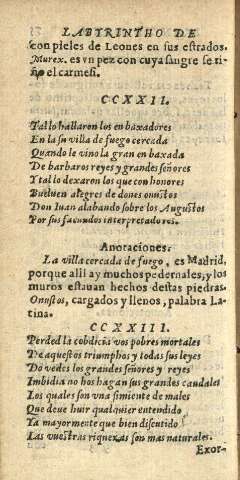 LABYRINTHO DE
con pieles de Leones en sus estrados.
Murex. es vn pez con cuya sangre se ti-
ño el carmesi.
CCXXII.
Tal lo hallaron los embaxadores
En la su villa de fuego cercada
Quando le vino la gran embaxada
De barbaros reyes y grandes señores
Y tal lo dexaron los que con honores
Bueluen alegres de dones onustos
Don Iuan alabando sobre los Augustos
Por sus facundos interpretadores.
Anotaciones.
La villa cercada de fuego, es Madrid,
porque alli ay muchos pedernales, y los
muros estauan hechos destas piedras.
Onustos, cargados y llenos, palabra La-
tina.
CCXXIII.
Perded la cobdicia vos pobres mortales
De aquestos triumphos y todas sus leyes
Do vedes los grandes señores y reyes
Imbidia no hos hagan sus grandes caudales
Los quales son vna simiente de males
Que deue huir qualquier entendido
Ya mayormente que bien discutido
Las vuestras riquezas son mas naturales.
Exor-